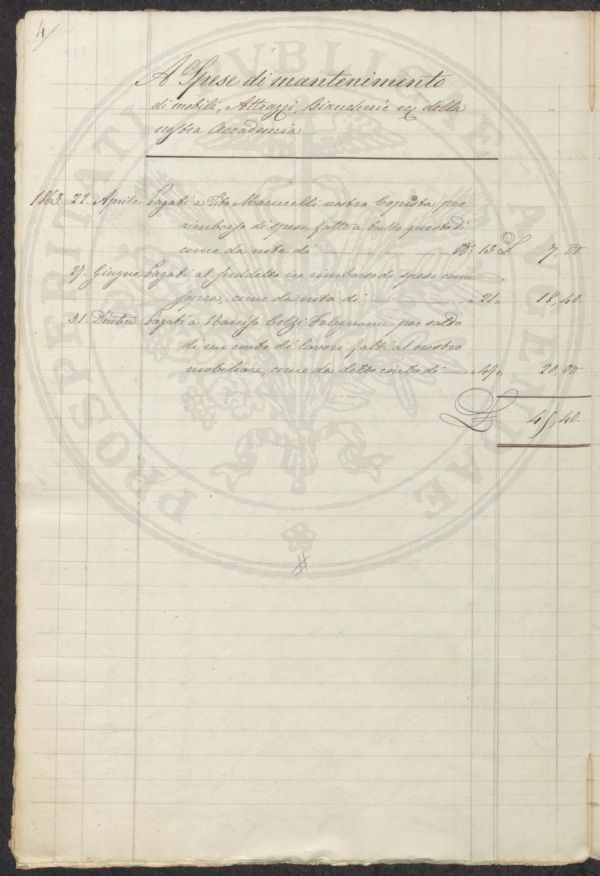 4/
A Spese di mantenimento
di mobili, Attrazzi, Biancherie ec della
nostra Accademia
1863. 22. Aprile Pagati a Tito Marucelli nostro Copista per
rimborso di spese fatte a tutto questo dì
come da nota di N.º 13 £ 7,00
27. Giugno Pagati al suddetto in rimborso di spese come
sopra, come da nota di " 21 " 18,40.
31. Dmbre Pagati a Narciso Falegname per saldo
di un conto di lavori fatti al nostro
mobiliare, come da detto conto di " 49 " 20,00
£ 45,40.
#
PROSPERITATI PVBLICAE AVGENDAE